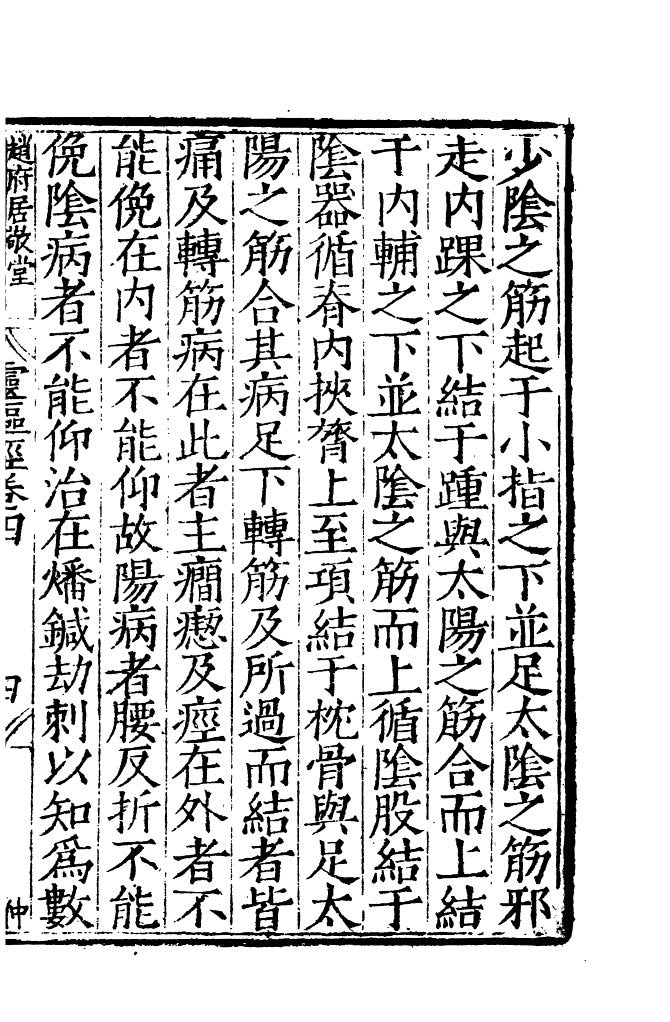 少陰之筋起于小指之下並足太陰之筋邪
走內踝之下結于踵與太陽之筋合而上結
于内輔之下並太陰之筋而上循陰股結于
陰器循脊内挾膂上至項結于枕骨與足太
陽之筋合其病足下轉筋及所過而結者皆
痛及轉筋病在此者主癇瘛及痙在外者不
能俛在内者不能仰故陽病者腰反折不能
俛陰病者不能仰治在燔鍼劫刺以知爲數
趙府居敬堂
靈樞經卷四
仲